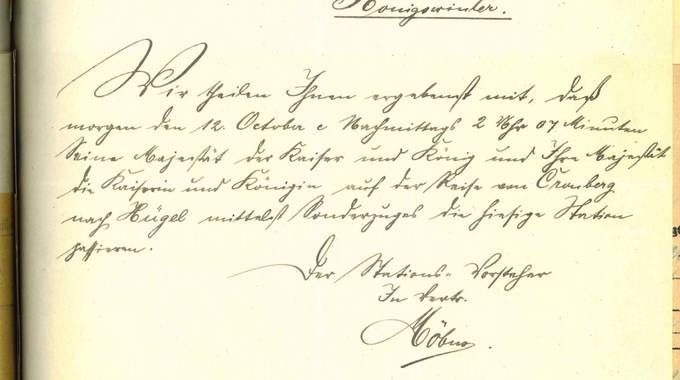 Königswinter.
Wir theilen Ihnen ergebenst mit, daß
morgen den 12. October c Nachmittags 2 Uhr 07 Minuten
Seine Majestät der Kaiser und König und Ihre Majestät
die Kaiserin und Königin auf der Reise von Cronberg
nach Hügel mittelst Sonderzuges die hiesige Station
passieren.
Der Stations-Vorsteher
In Vertr.
Möbus.